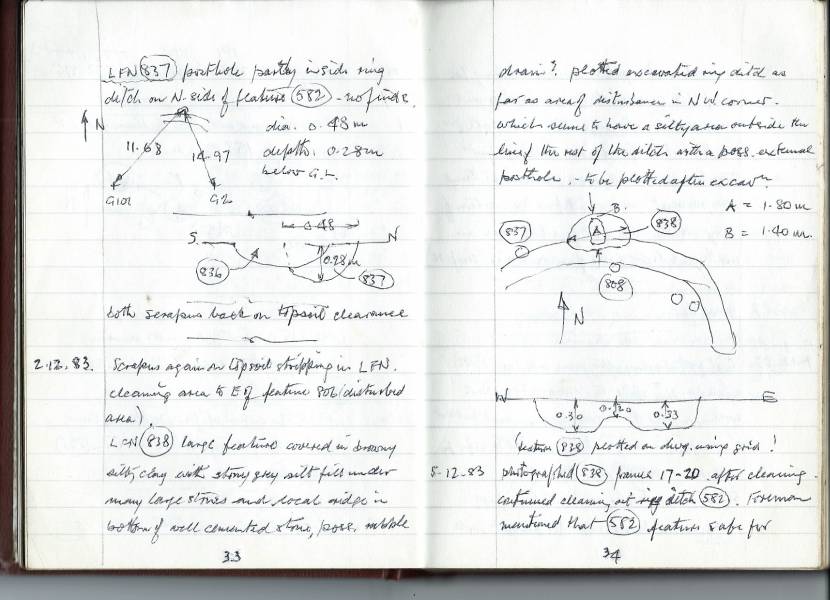 LFN 837 posthole partly inside ring
ditch on N. side of feature 582 - no finds.
N
11.68
14.97
G101
G2
dia. 0.48m
depth. 0.28m
below G.L.
0.48
S.
N
0.28m
836
837
both scrapers back on topsoil clearance
2.12.83. Scrapers again on topsoil stripping in LFN.
cleaning area to E of feature 806 (disturbed
area).
LFN 838 large feature covered in browny
silty clay with stoney grey silt fill under
many large stones and local ridge in
bottom of well cemented stone, poss. rubble
33
drain?. plotted excavated ring ditch as
far as area of disturbance in NW corner.
which seems to have a silty area outside the
line of the rest of the ditch with a poss. external
posthole. - to be plotted after excavn.
A = 1.80m
B = 1.40m.
B.
A
837
838
808
N
W
E
0.30
0.20
0.33
section 838 plotted on dwg. using grid!
5.12.83 photographed 838 frames 17-20 after cleaning.
continued cleaning out ring ditch 582. Foreman
mentioned that 582 feature safe for
34